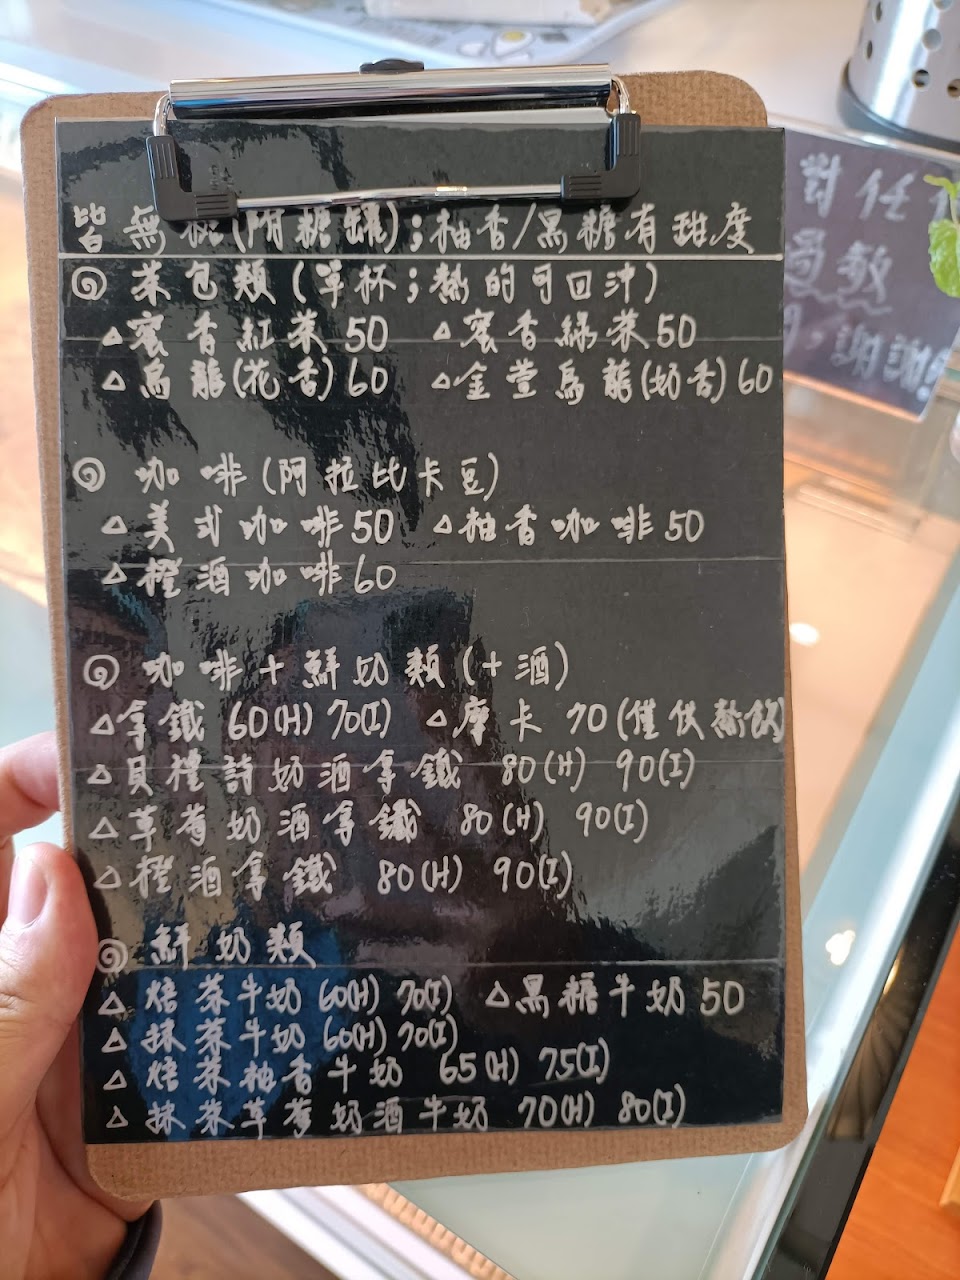 皆無糖(附糖罐);柚香/黑糖有甜度
茶包類(單杯;熱的可回沖)
△蜜香紅茶50 △蜜香綠茶50
△烏龍(花香)60 △金萱烏龍(奶香)60
咖啡(阿拉比卡豆)
△美式咖啡50 △柚香咖啡50
△橙酒咖啡60
咖啡+鮮奶類(+酒)
△拿鐵 60(H) 70(I) △摩卡 70(僅供熱飲)
△貝禮詩奶酒拿鐵 80(H) 90(I)
△草莓奶酒拿鐵 80(H) 90(I)
△橙酒拿鐵 80(H) 90(I)
鮮奶類
△焙茶牛奶 60(H) 70(I) △黑糖牛奶50
△抹茶牛奶 60(H) 70(I)
△焙茶柚香牛奶 65(H) 75(I)
△抹茶草莓奶酒牛奶 70(H) 80(I)
對任
過敏
,謝謝